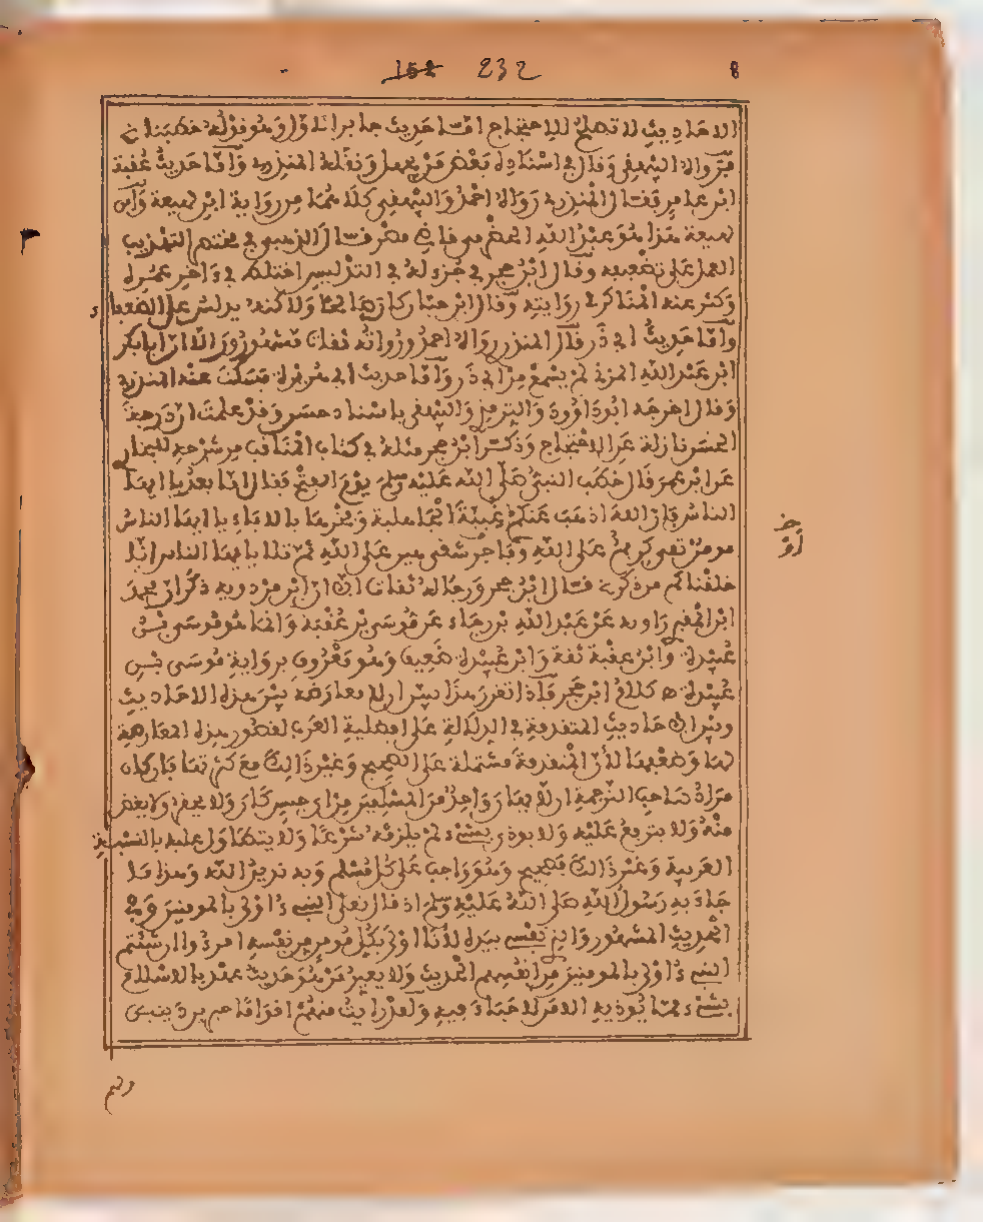 152 232 8
الاحاديث لا تصلح للاحتجاج اما حديث جابر انا اول وهو قوله خطبنا
فرواه البيهقي وقال في اسناده بعض من يجهل ونقله المنذري واما حديث عقبة
ابن عامر فقال المنذري رواه احمد والبيهقي كلاهما من رواية ابن لهيعة وابن
لهيعة هذا هو عبد الله الحضرمي قاضي مصر قال الذهبي في مختصر التهذيب
العمل على تضعيفه وقال ابن حجر في جزء له في التدليس اختلط في واخر عمره
وكثر عنه المناكر في روايته وقال ابن حبان كان صالحا ولاكنه يدلس على الضعفاء
واما حديث ابي ذر قال المنذري رواه احمد ورواته ثقات مشهورون الا ان ابا بكر
ابن عبد الله المزني لم يسمع من ابي ذر واما حديث ابي هريرة فسكت عنه المنذري
وقال اخرجه ابو داوود والترمذي والبيهقي باسناد حسن وقد علمت ان درجة
الحسن نازلة عن الاحتجاج وذكر ابن حجر مثله في كتاب المناقب من شرحه للبخاري
عن ابن عمر قال خطب النبي صلى الله عليه وسلم يوم الفتح فقال اما بعد يا ايها
الناس فان الله اذهب عنكم عبية الجاهلية وفخرها بالاباء يا ايها الناس
مومن تقي كريم على الله وفاجر شقي هين على الله ثم تلا يا ايها الناس انا
خلقناكم من ذكر قال ابن حجر ورجاله ثقات الا ان ابن مردويه ذكر ان محمد
ابن المقري راويه عن عبد الله بن رجاء عن موسى بن عقبة وانما هو موسى بن
عبيدة وابن عقبة ثقة وابن عبيدة ضعيف وهو معروف برواية موسى بن
عبيدة ه كلام ابن حجر فاذا تقرر هذا تبين ان لا معارضة بين هذه الاحاديث
وبين الاحاديث المتقدمة في الدلالة على افضلية العرب لقصور هذه المعارضة
لها وضعفها لان المتقدمة مشتملة على الصحيح وغير ذالك مع كثرتها فان كان
مراد صاحب الترجمة ان لا يهان واحد من المسلمين من اي جنس كان ولا يحقر ولا يغض
منه ولا يترفع عليه ولا يوذى بشيء لم يلزمه شرعا ولا يتطاول عليه بالنسبة
العربية وغير ذالك فصحيح وهو واجب على كل مسلم وبه ندين الله وهذا ما
جاء به رسول الله صلى الله عليه وسلم اذ قال تعالى النبيء اولى بالمومنين وفي
الحديث المشهور والذي نفسي بيده لانا اولى بكل مومن من نفسه اقرءوا ان شئتم
النبيء اولى بالمومنين من انفسهم الحديث ولا يعير من هو حديث عهد بالاسلام
بشيء مما يوذيه الا من لا خلاق فيه ولقد رايت منهم اقواما